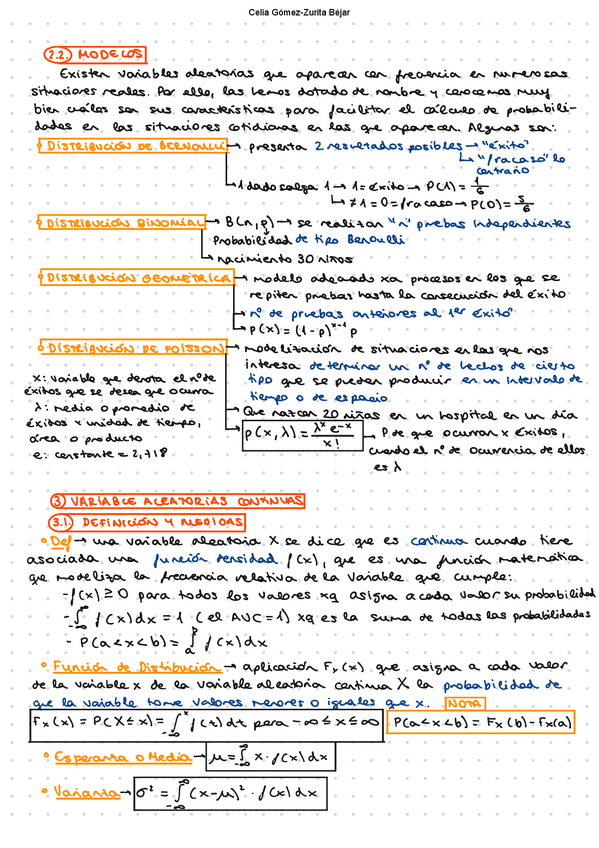 Celia Gómez-Zurita Béjar
2.2. MODELOS
Existen variables aleatorias que aparecen con frecuencia en numerosas
situaciones reales. Por ello, las hemos dotado de nombre y conocemos muy
bien cuáles son sus características para facilitar el cálculo de probabili-
dades en las situaciones cotidianas en las que aparecen. Algunas son:
DISTRIBUCIÓN DE BERNOULLI → presenta 2 resultados posibles → "éxito"
↳ "fracaso" lo
contraño
↳ 1 dado salga 1 → 1 = éxito → P(1) = 1/6
↳ ≠ 1 = 0 = fracaso → P(0) = 5/6
DISTRIBUCIÓN BINOMIAL → B(n,p) → se realizan "n" pruebas independientes
Probabilidad de tipo Beroulli
↳ nacimiento 30 niños
DISTRIBUCIÓN GEOMÉTRICA → modelo adecuado xa procesos en los que se
repiten pruebas hasta la consecución del éxito
→ nº de pruebas anteriores al 1er éxito"
↳ P(x) = (1-p)^x-1 p
DISTRIBUCIÓN DE POISSON → modelización de situaciones en las que nos
interesa determinar un nº de hechos de cierto
tipo que se pueden producir en un intervalo de
tiempo o de espacio
→ Que nazcan 20 niñas en un hospital en un día
x: variable que denota el nº de
éxitos que se desea que ocurra
λ: media o promedio de
éxitos x unidad de tiempo,
área o producto
e: constante = 2,718
p(x,λ) = λ^x e^-x / x!
P de que ocurran x éxitos,
cuando el nº de ocurrencia de ellos
es λ
3 VARIABLE ALEATORIAS CONTINUAS
3.1. DEFINICIÓN Y MEDIDAS
• Def → una variable aleatoria X se dice que es continua cuando tiene
asociada una función densidad f(x), que es una función matemática
que modeliza la frecuencia relativa de la variable que cumple:
- f(x) ≥ 0 para todos los valores xq asigna a cada valor su probabilidad
- ∫_-∞^∞ f(x)dx = 1 (el AUC = 1) xq es la suma de todas las probabilidades
- P(a<x<b) = ∫_a^b f(x)dx
• Función de Distribución → aplicación Fx(x) que asigna a cada valor
de la variable x de la variable aleatoria continua X la probabilidad de
que la variable tome valores menores o iguales que x. NOTA
Fx(x) = P(X ≤ x) = ∫_-∞^x f(t)dt para -∞ ≤ x ≤ ∞ P(a<x<b) = Fx(b) - Fx(a)
• Esperanza o Media → μ = ∫_-∞^∞ x·f(x)dx
• Varianza → σ² = ∫_-∞^∞ (x-μ)²·f(x)dx